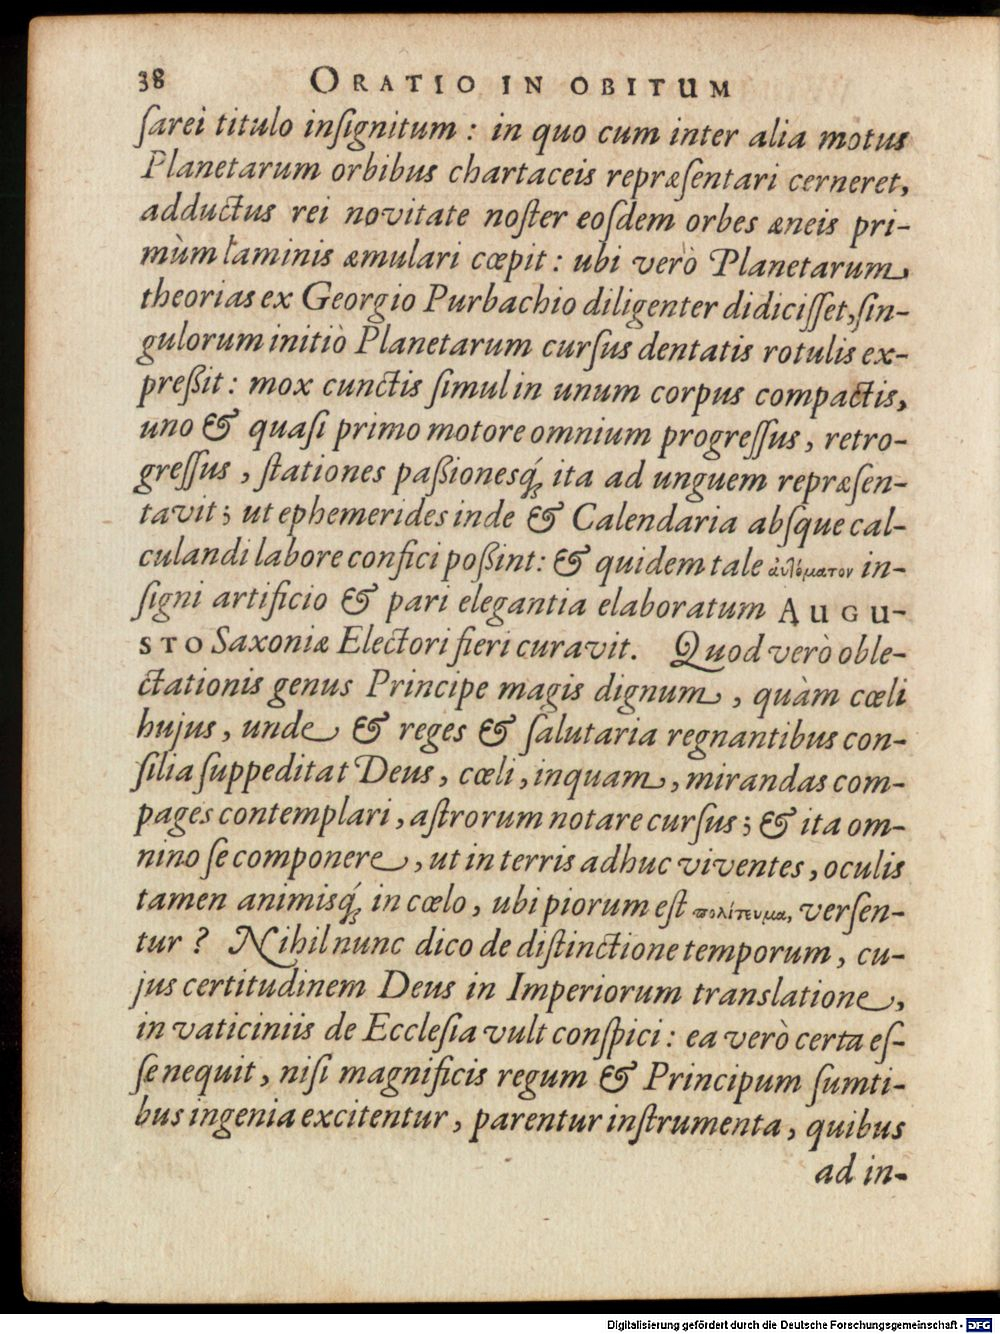 38 ORATIO IN OBITUM
ſarei titulo inſignitum : in quo cum inter alia motus
Planetarum orbibus chartaceis repræſentari cerneret,
adductus rei novitate noſter eoſdem orbes æneis pri-
mùm laminis æmulari cœpit : ubi verò Planetarum
theorias ex Georgio Purbachio diligenter didiciſſet, ſin-
gulorum initiò Planetarum curſus dentatis rotulis ex-
preßit : mox cunctis ſimul in unum corpus compactis,
uno & quaſi primo motore omnium progreſſus, retro-
greſſus, ſtationes paßionesq́; ita ad unguem repræſen-
tavit; ut ephemerides inde & Calendaria abſque cal-
culandi labore confici poßint: & quidem tale ἀυτόματον in-
ſigni artificio & pari elegantia elaboratum AUGU-
STO Saxoniæ Electori fieri curavit. Quod verò oble-
ctationis genus Principe magis dignum, quàm cœli
hujus, unde & reges & ſalutaria regnantibus con-
ſilia ſuppeditat Deus, cœli, inquam, mirandas com-
pages contemplari, aſtrorum notare curſus; & ita om-
nino ſe componere, ut in terris adhuc viventes, oculis
tamen animisq́; in cœlo, ubi piorum eſt πολίτευμα, verſen-
tur ? Nihil nunc dico de diſtinctione temporum, cu-
jus certitudinem Deus in Imperiorum translatione,
in vaticiniis de Eccleſia vult conſpici : ea verò certa eſ-
ſe nequit, niſi magnificis regum & Principum ſumti-
bus ingenia excitentur, parentur inſtrumenta, quibus
ad in-
Digitalisierung gefördert durch die Deutsche Forschungsgemeinschaft - DFG